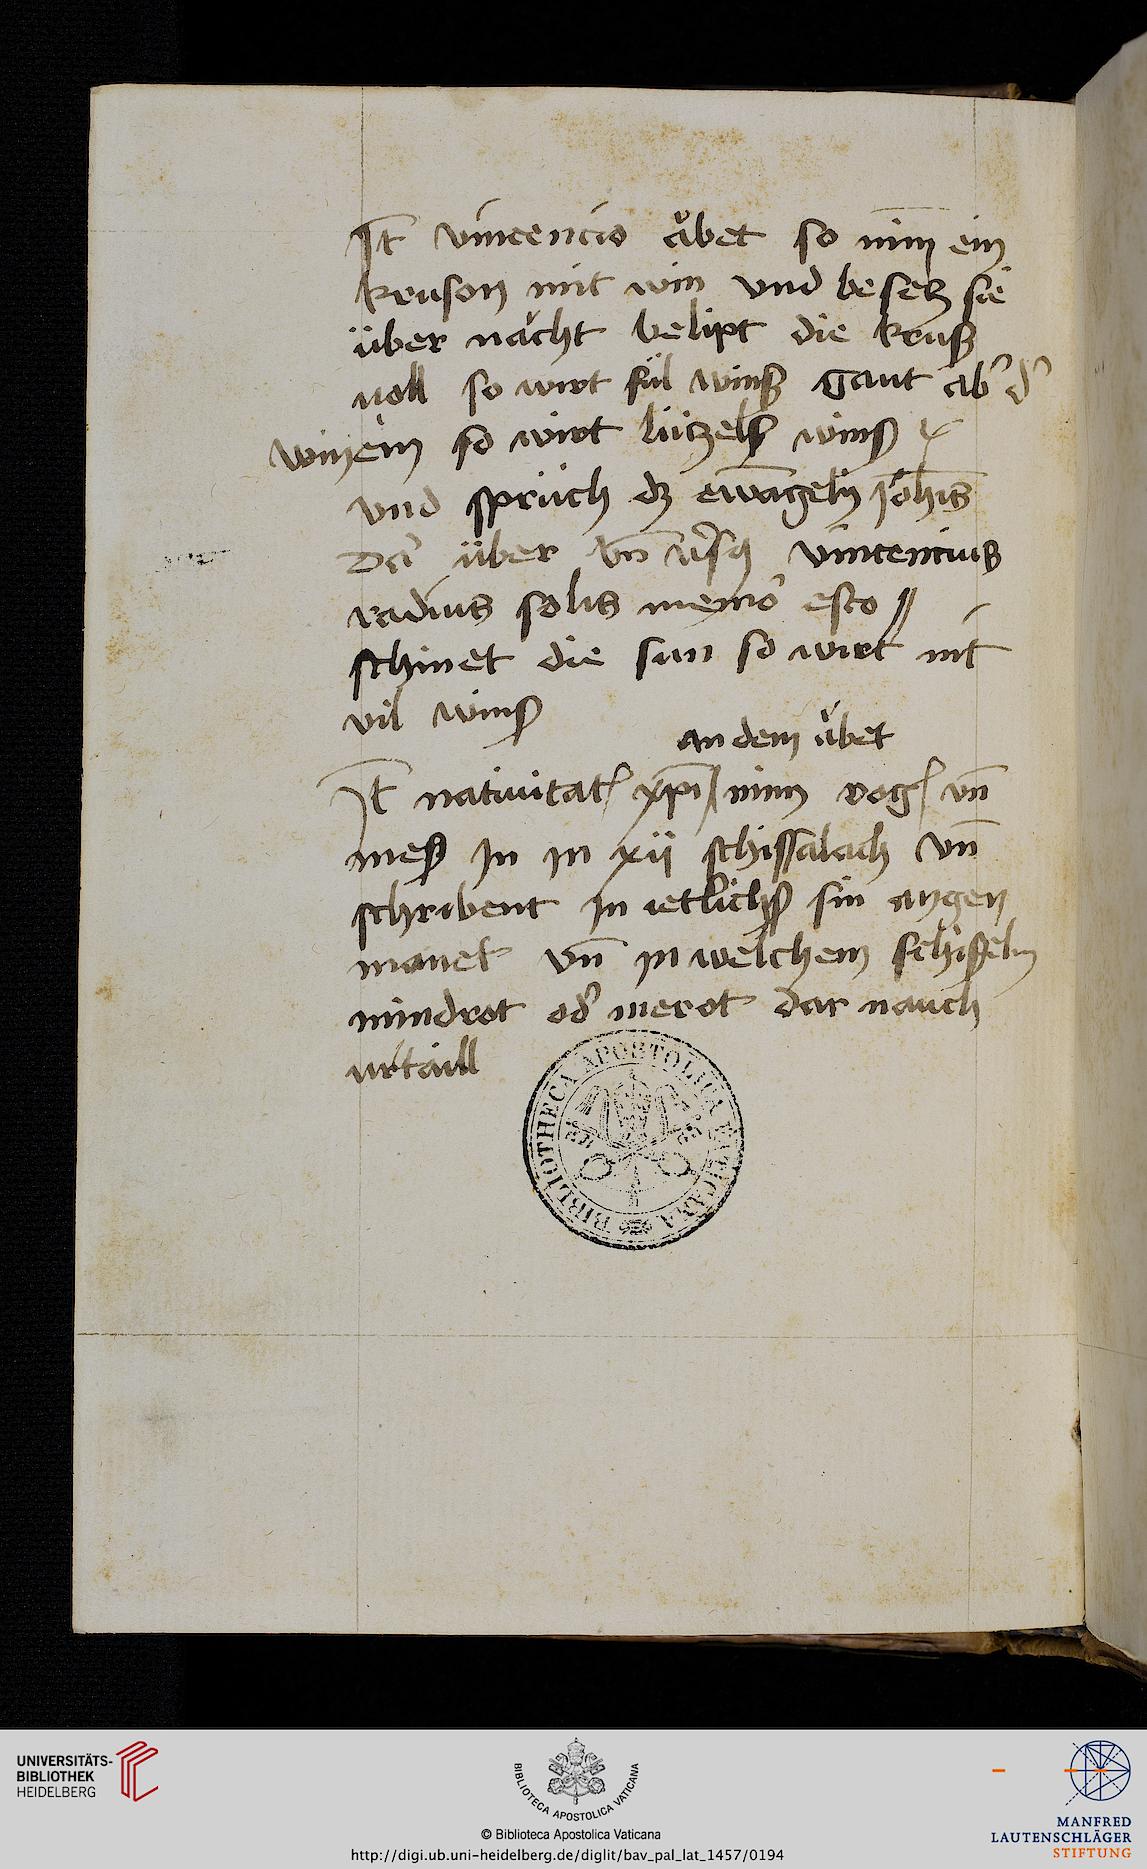 It vincencio aͮbet so nim̄ ein
krusen mit win vnd besetz sie
über nácht belipt die kruß
voll so wirt fúl winß gaut ab d
winem so wirt lützelß winß
vnd sprüch dz ewāgelij Johis
Dar über vn̄ vincencius
radius solis memor esto //
schinet die sun so wirt nit
vil winß
an dem aͮbet
It nativitat xp̄i nim rog vn̄
meß In in xii schissalach vn̄
schribent In ietlichß sin aygen
monet vn̄ in welchem schisselin
mindrot od merot dar nauch
urtaill
BIBLIOTHECA APOSTOLICA VATICANA
UNIVERSITÄTS-
BIBLIOTHEK
HEIDELBERG
BIBLIOTECA APOSTOLICA VATICANA
© Biblioteca Apostolica Vaticana
http://digi.ub.uni-heidelberg.de/diglit/bav_pal_lat_1457/0194
MANFRED
LAUTENSCHLÄGER
STIFTUNG